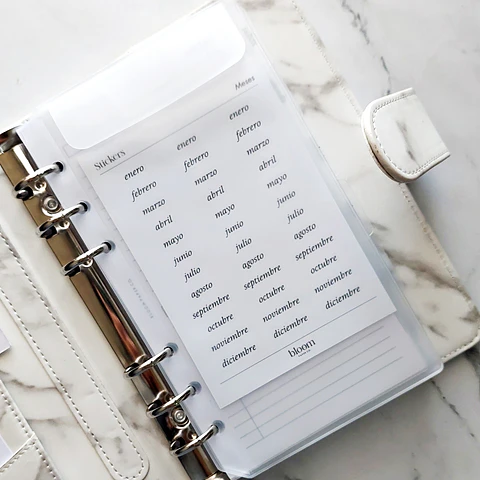 Stickers Meses
enero enero enero
febrero febrero febrero
marzo marzo marzo
abril abril abril
mayo mayo mayo
junio junio junio
julio julio julio
agosto agosto septiembre
septiembre septiembre octubre
octubre octubre noviembre
noviembre noviembre diciembre
diciembre diciembre
bloom